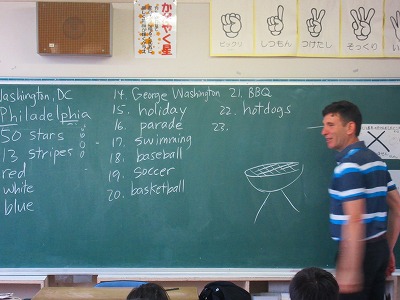 かがやく星
ビックリ
しつもん
つけたし
そっくり
Washington, DC
Philadelphia
50 stars
13 stripes
red
white
blue
14. George Washington
15. holiday
16. parade
17. swimming
18. baseball
19. soccer
20. basketball
21. BBQ
22. hotdogs
23.